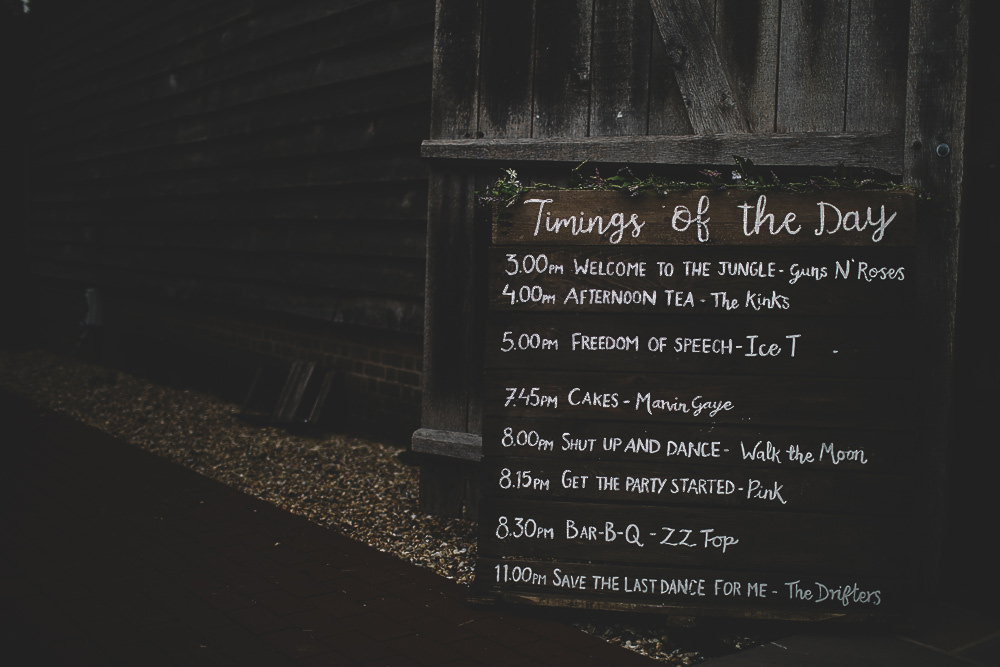 Timings of the Day
3.00PM WELCOME TO THE JUNGLE - Guns N' Roses
4.00PM AFTERNOON TEA - The Kinks
5.00PM FREEDOM OF SPEECH - Ice T
7.45PM CAKES - Marvin Gaye
8.00PM SHUT UP AND DANCE - Walk the Moon
8.15PM GET THE PARTY STARTED - Pink
8.30PM BAR-B-Q - ZZ Top
11.00PM SAVE THE LAST DANCE FOR ME - The Drifters